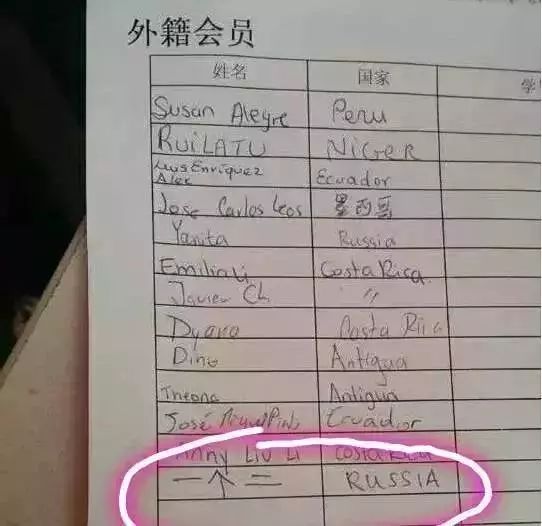 外籍会员
姓名 国家
Susan Alegre Peru
RUiLATU NiGER
Luis Enriquez Ecuador
Alec
Jose Carlos Leos 墨西哥
Yanita Russia
Emiliali Costa Rica
Javier Ch. "
Dyana Costa Rica
Dino Antigua
Theona Antigua
José Ecuador
Anny Liu Li Costa Rica
一个二 RUSSIA